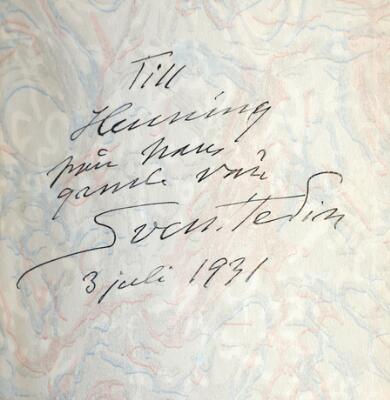 Till
Henning
från hans
gamle vän
Sven Hedin
3 juli 1931